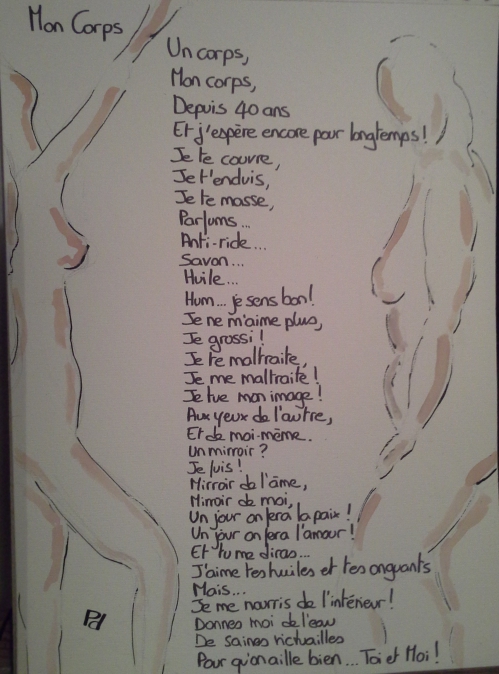 Mon Corps
Un corps,
Mon corps,
Depuis 40 ans
Et j'espère encore pour longtemps !
Je te couvre,
Je t'enduis,
Je te masse,
Parfums...
Anti-ride...
Savon...
Huile...
Hum... je sens bon !
Je ne m'aime plus,
Je grossi !
Je te maltraite,
Je me maltraite !
Je tue mon image !
Aux yeux de l'autre,
Et de moi-même.
Un mirroir ?
Je fuis !
Mirroir de l'âme,
Mirroir de moi,
Un jour on fera la paix !
Un jour on fera l'amour !
Et tu me diras...
J'aime tes huiles et tes onguants
Mais...
Je me nourris de l'intérieur !
Donnes moi de l'eau
De saines victuailles
Pour qu'on aille bien... Toi et Moi !
Pd